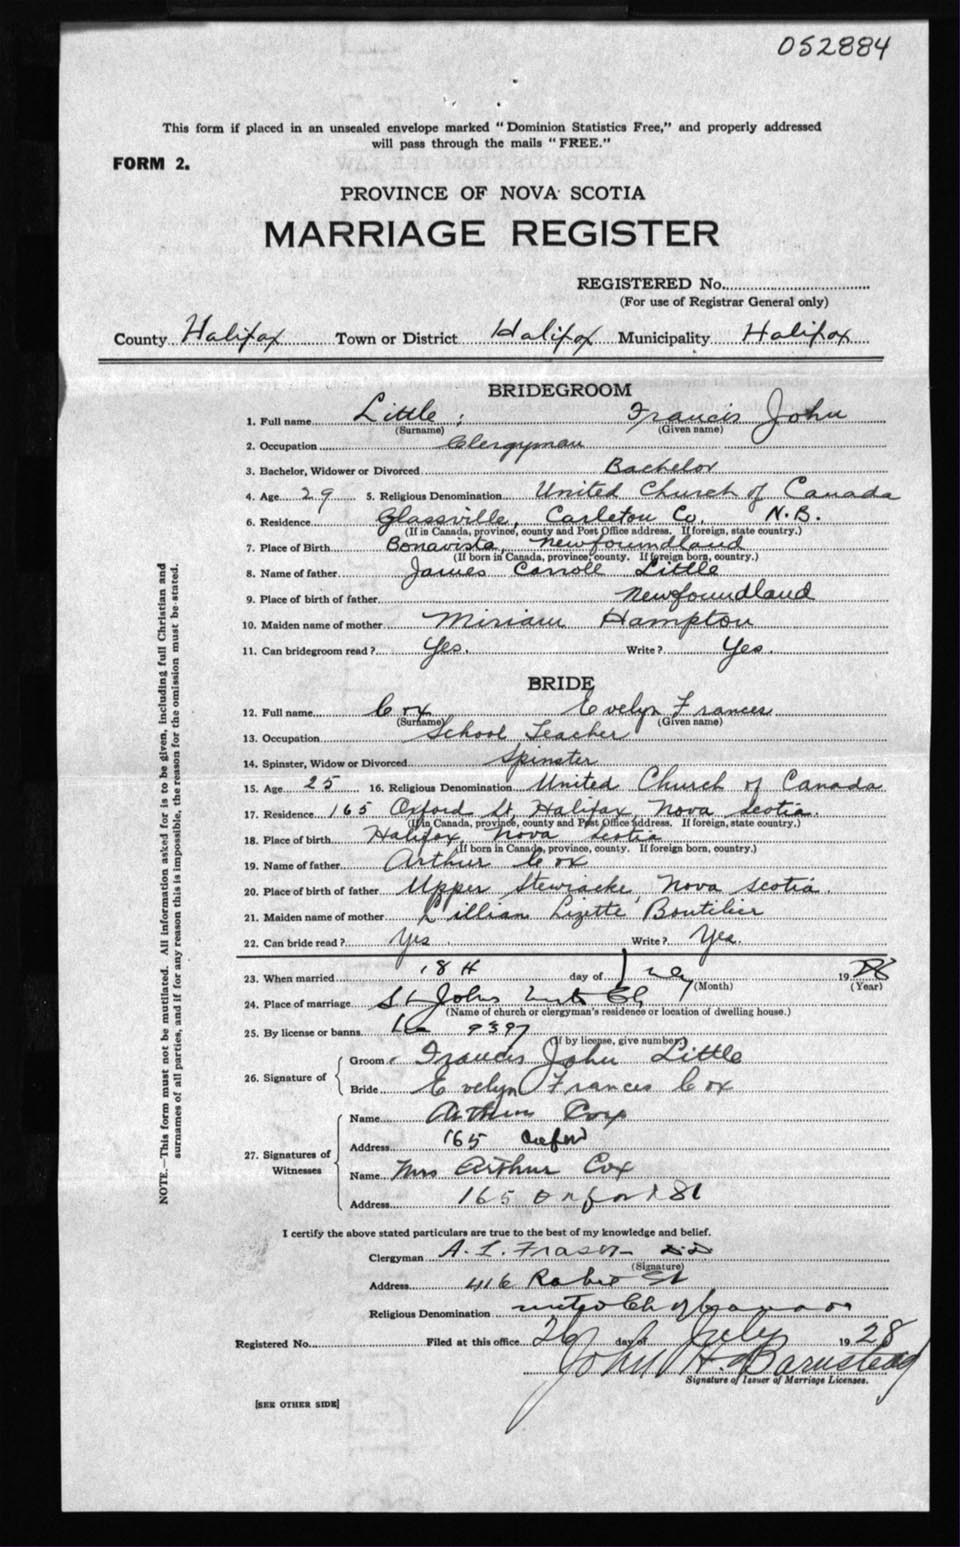 052884
This form if placed in an unsealed envelope marked "Dominion Statistics Free," and properly addressed
will pass through the mails "FREE."
FORM 2.
PROVINCE OF NOVA SCOTIA
MARRIAGE REGISTER
REGISTERED No.
(For use of Registrar General only)
County Halifax Town or District Halifax Municipality Halifax
BRIDEGROOM
1. Full name Little, Francis John
(Surname) (Given name)
2. Occupation Clergyman
3. Bachelor, Widower or Divorced Bachelor
4. Age 29 5. Religious Denomination United Church of Canada
6. Residence Glassville, Carleton Co, N.B.
(If in Canada, province, county and Post Office address. If foreign, state country.)
7. Place of Birth Bonavista, Newfoundland
(If born in Canada, province, county. If foreign born, country.)
8. Name of father James Carroll Little
9. Place of birth of father Newfoundland
10. Maiden name of mother Miriam Hampton
11. Can bridegroom read? Yes. Write? Yes.
BRIDE
12. Full name Cox Evelyn Frances
(Surname) (Given name)
13. Occupation School Teacher
14. Spinster, Widow or Divorced Spinster
15. Age 25 16. Religious Denomination United Church of Canada
17. Residence 165 Oxford St, Halifax, Nova Scotia.
(If in Canada, province, county and Post Office address. If foreign, state country.)
18. Place of birth Halifax, Nova Scotia
(If born in Canada, province, county. If foreign born, country.)
19. Name of father Arthur Cox
20. Place of birth of father Upper Stewiacke, Nova Scotia.
21. Maiden name of mother Lillian Lizette Boutilier
22. Can bride read? Yes. Write? Yes.
23. When married 18th day of July 1928
(Month) (Year)
24. Place of marriage St Johns Ch
(Name of church or clergyman's residence or location of dwelling house.)
25. By license or banns 9397
(If by license, give number.)
26. Signature of
Groom Francis John Little
Bride Evelyn Frances Cox
27. Signatures of Witnesses
Name Arthur Cox
Address 165 Oxford
Name Mrs Arthur Cox
Address 165 Oxford St
I certify the above stated particulars are true to the best of my knowledge and belief.
Clergyman A. L. Fraser D.D
(Signature)
Address 416 Robie St
Religious Denomination United Ch of Canada
Registered No. Filed at this office 26 day of July 1928
John H. Barnstead
Signature of Issuer of Marriage Licenses.
[SEE OTHER SIDE]
NOTE.—This form must not be mutilated. All information asked for is to be given, including full Christian and
surnames of all parties, and if for any reason this is impossible, the reason for the omission must be stated.